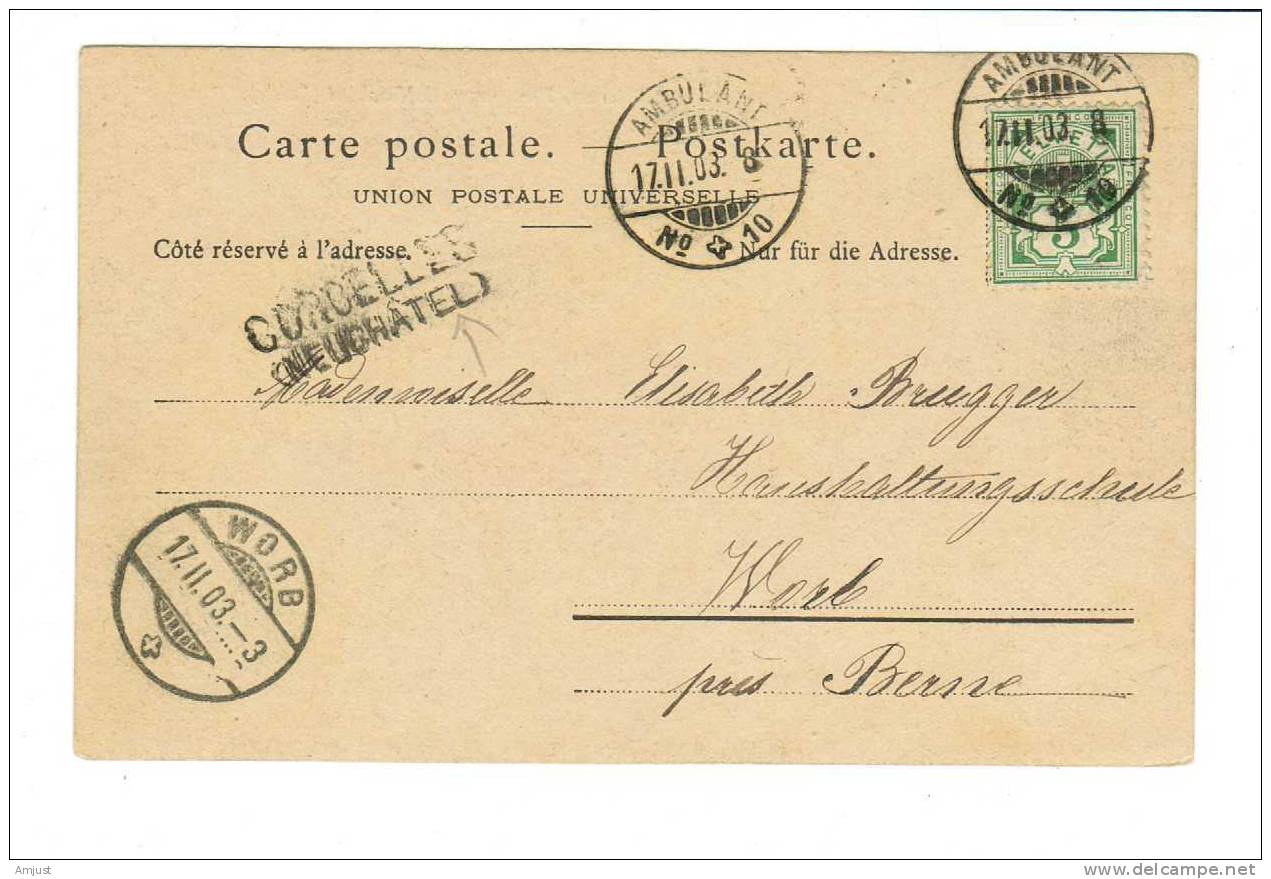 AMBULANT
17.II.03. 8
No 10
AMBULANT
17.II.03. 8
No 10
HELVETIA
5
Carte postale. — Postkarte.
UNION POSTALE UNIVERSELLE
Côté réservé à l'adresse.
Nur für die Adresse.
CORCELLES
(NEUCHÂTEL)
Mademoiselle Elisabeth Brugger
Haushaltungsschule
Worb
près Berne
WORB
17.II.03.—3
Amjust
delcampe.net